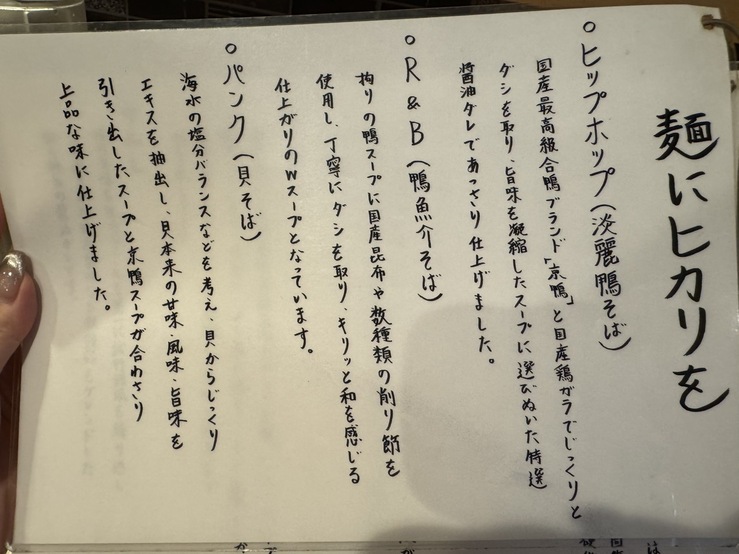 麺にヒカリを
○ヒップホップ(淡麗鴨そば)
国産最高級合鴨ブランド「京鴨」と国産鶏ガラでじっくりと
ダシを取り、旨味を凝縮したスープに選びぬいた特選
醤油ダレであっさり仕上げました。
○R&B(鴨魚介そば)
拘りの鴨スープに国産昆布や数種類の削り節を
使用し、丁寧にダシを取り、キリッと和を感じる
仕上がりのWスープとなっています。
○パンク(貝そば)
海水の塩分バランスなどを考え、貝からじっくり
エキスを抽出し、貝本来の甘味・風味・旨味を
引き出したスープと京鴨スープが合わさり
上品な味に仕上げました。